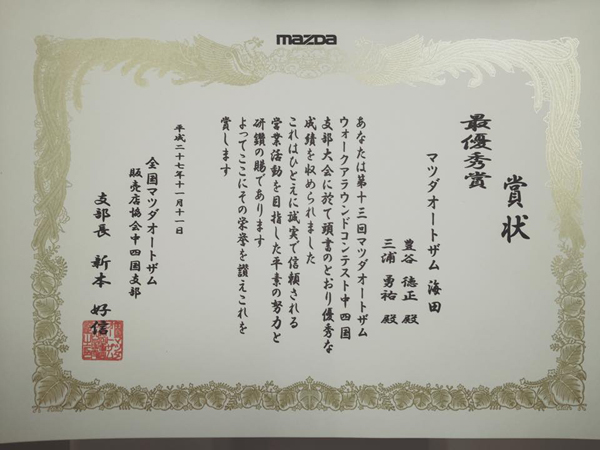 mazda
賞状
最優秀賞
マツダオートザム 海田
豊谷 徳正 殿
三浦 勇祐 殿
あなたは第十三回マツダオートザム
ウォークアラウンドコンテスト中四国
支部大会に於て頭書のとおり優秀な
成績を収められました
これはひとえに誠実で信頼される
営業活動を目指した平素の努力と
研鑽の賜であります
よってここにその栄誉を讃えこれを
賞します
平成二十七年十一月十一日
全国マツダオートザム
販売店協会中四国支部
支部長 新本 好信